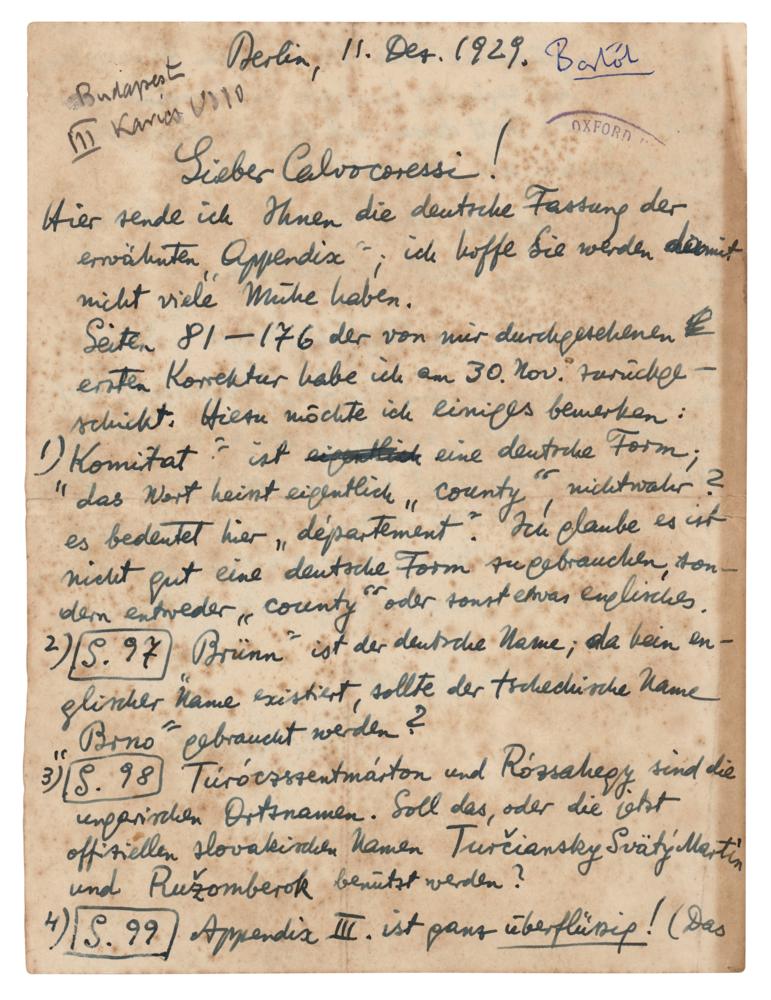 Berlin, 11. Dez. 1929. Bartók
Budapest
III Kavics U 10
OXFORD
Lieber Calvocoressi!
Hier sende ich Ihnen die deutsche Fassung der
erwähnten „Appendix“; ich hoffe Sie werden damit
nicht viele Mühe haben.
Seiten 81–176 der von mir durchgesehenen
ersten Korrektur habe ich am 30. Nov. zurückge-
schickt. Hiezu möchte ich einiges bemerken:
1) „Komitat“ ist eigentlich eine deutsche Form;
das Wort heisst eigentlich „county“, nichtwahr?
es bedeutet hier „département“. Ich glaube es ist
nicht gut eine deutsche Form zu gebrauchen, son-
dern entweder „county“ oder sonst etwas englisches.
2) S. 97 „Brünn“ ist der deutsche Name; da kein en-
glischer Name existiert, sollte der tschechische Name
„Brno“ gebraucht werden?
3) S. 98 Turóczszentmárton und Rózsahegy sind die
ungarischen Ortsnamen. Soll das, oder die jetzt
offiziellen slovakischen Namen Turčiansky Svätý Martin
und Ružomberok benützt werden?
4) S. 99 Appendix III. ist ganz überflüssig! (Das